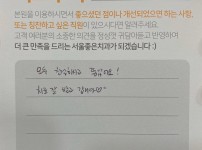 본원을 이용하시면서 좋으셨던 점이나 개선되었으면 하는 사항,
또는 칭찬하고 싶은 직원이 있으시다면 알려주세요.
고객 여러분의 소중한 의견을 정성껏 귀담아듣고 반영하여
더 큰 만족을 드리는 서울좋은치과가 되겠습니다 :)
모두 친절하시고 좋았어요!
치료 잘 받고 갑니다♡